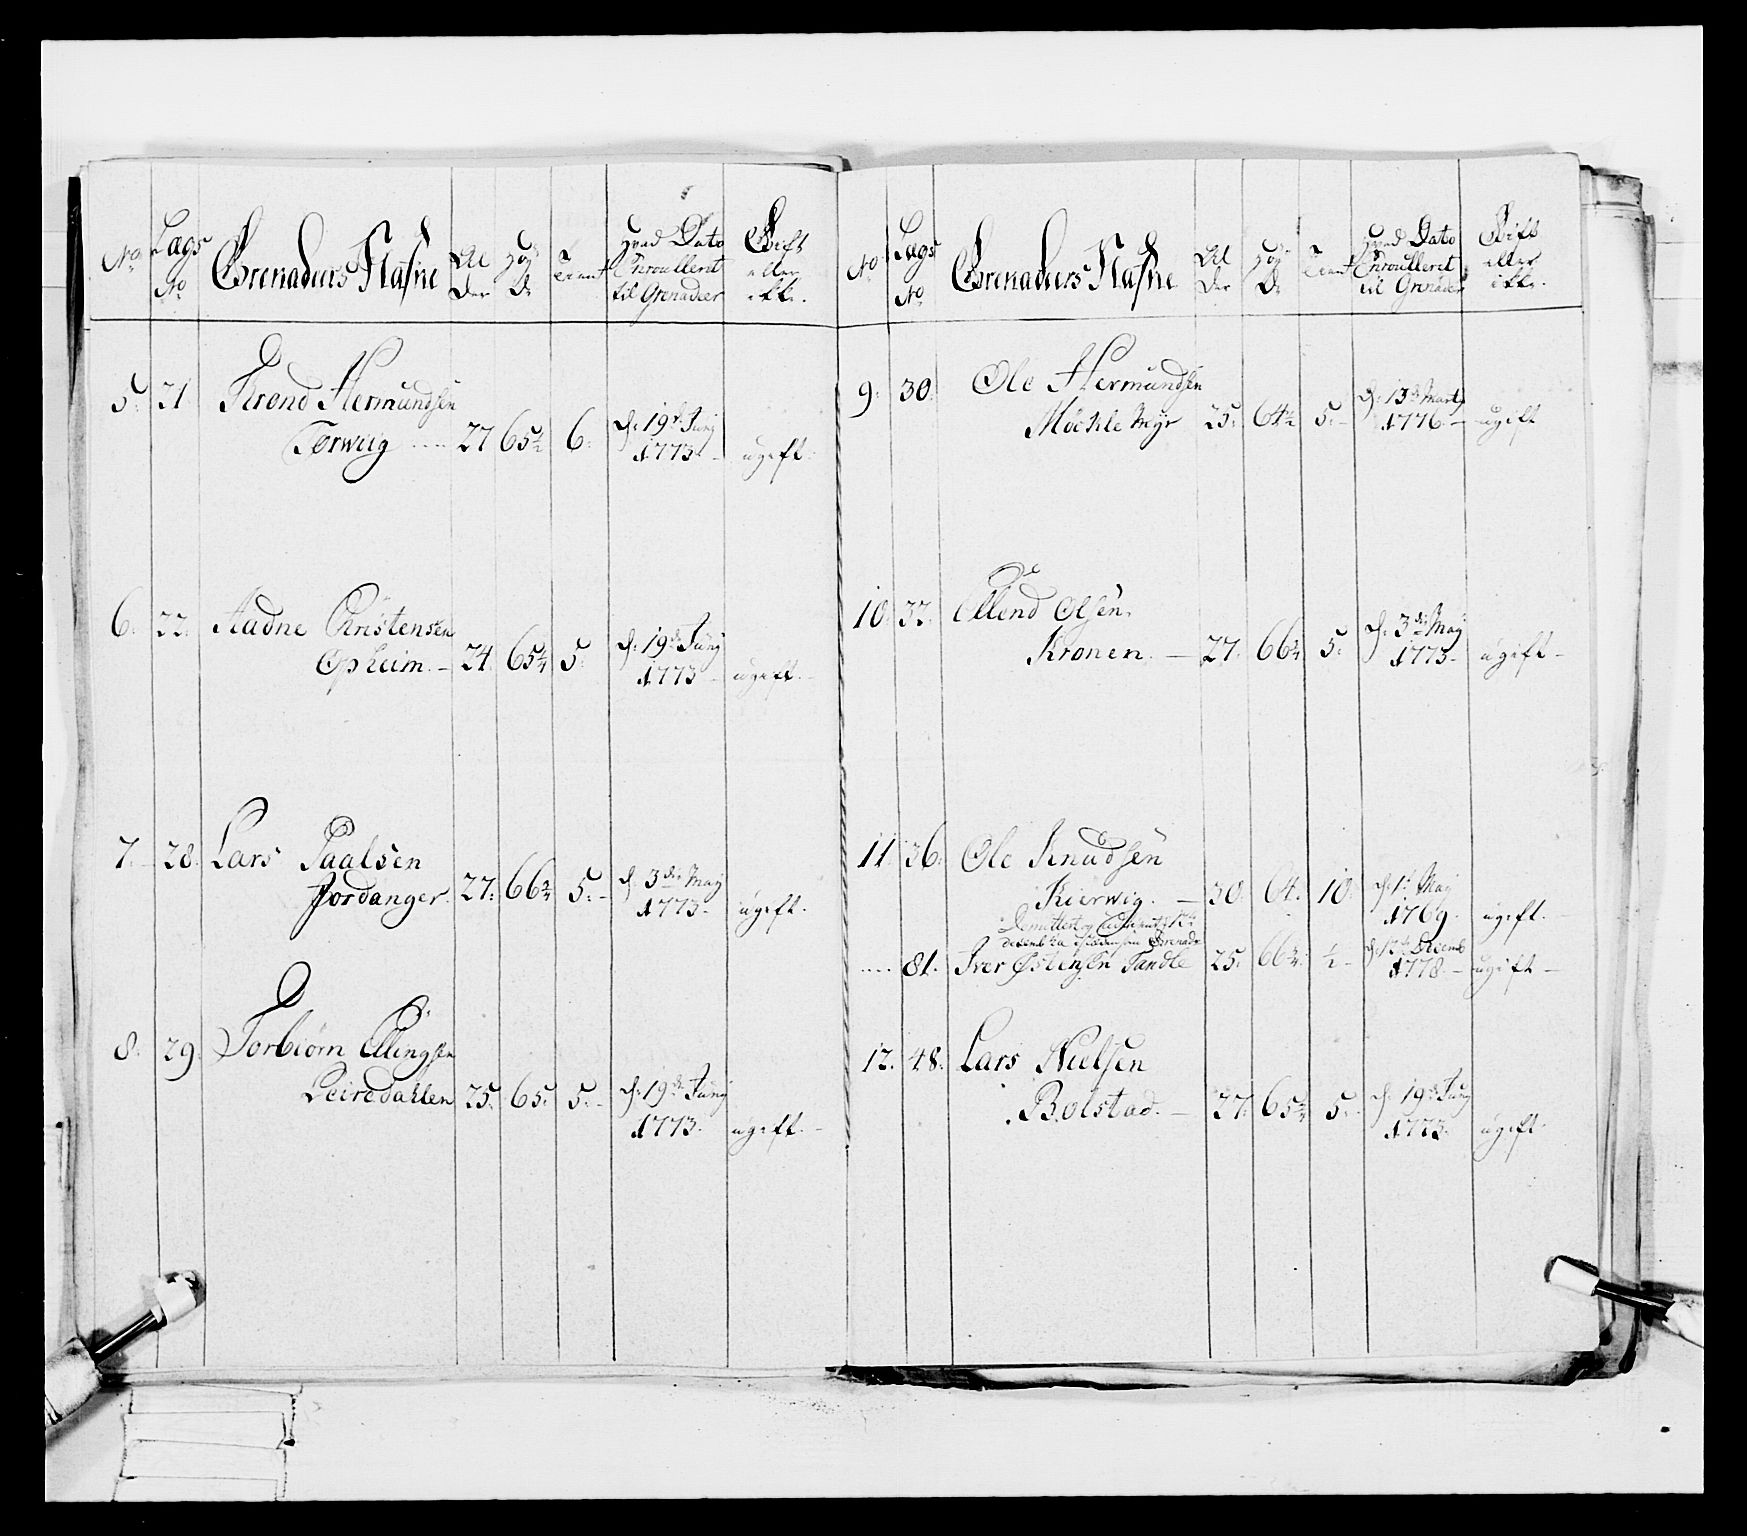 No
Lægs
No
Grenadeers Nafne
Al
der
Høy
de
Tient
Hvad Dato
Enroulleret
til Grenadeer
Gift
eller
ikke.
5. 21 Trond Hermundsen
Torwiig 27 65½ 6. d: 19de Juny
1773 ugift.
6. 22. Aadne Christensen
Opheim. 24. 65¾ 5. d: 19de Juny
1773 ugift.
7. 28. Lars Paalsen
Jordanger. 27. 66¾ 5. d: 3die May
1773. ugift.
8. 29. Torbiørn Ellingsen
Leiredahlen 25. 65. 5. d: 19de Juny
1773. ugift.
No
Lægs
No
Grenadeers Nafne
Al
der
Høy
de
Tient
Hvad Dato
Enroulleret
til Grenadeer
Gift
eller
ikke.
9. 30. Ole Hermundsen
Møchlemyr 25. 64½ 5. d: 13de Marty
1776. ugift
10. 32. Ellend Olsen
Kronen. 27. 66¾ 5. d: 3die May
1773. ugift
11. 36. Ole Knudsen
Kierwig. 30. 64. 10. d: 1te May
1769. ugift.
Demittert og
Grenadr
81. Iver Østensen Tandle 25. 66¾. ½ d: 12te Decemb
1778. ugift
12. 48. Lars Nielsen
Bolstad. 27. 65¾ 5. d: 19de Juny
1773. ugift.